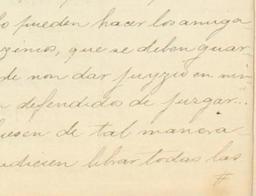 lo pueden hacer los amiga
zimos, que se deben guar
de non dar juyzio en nin
defendido de juzgar..
fuesen de tal manera
udicien librar todas las